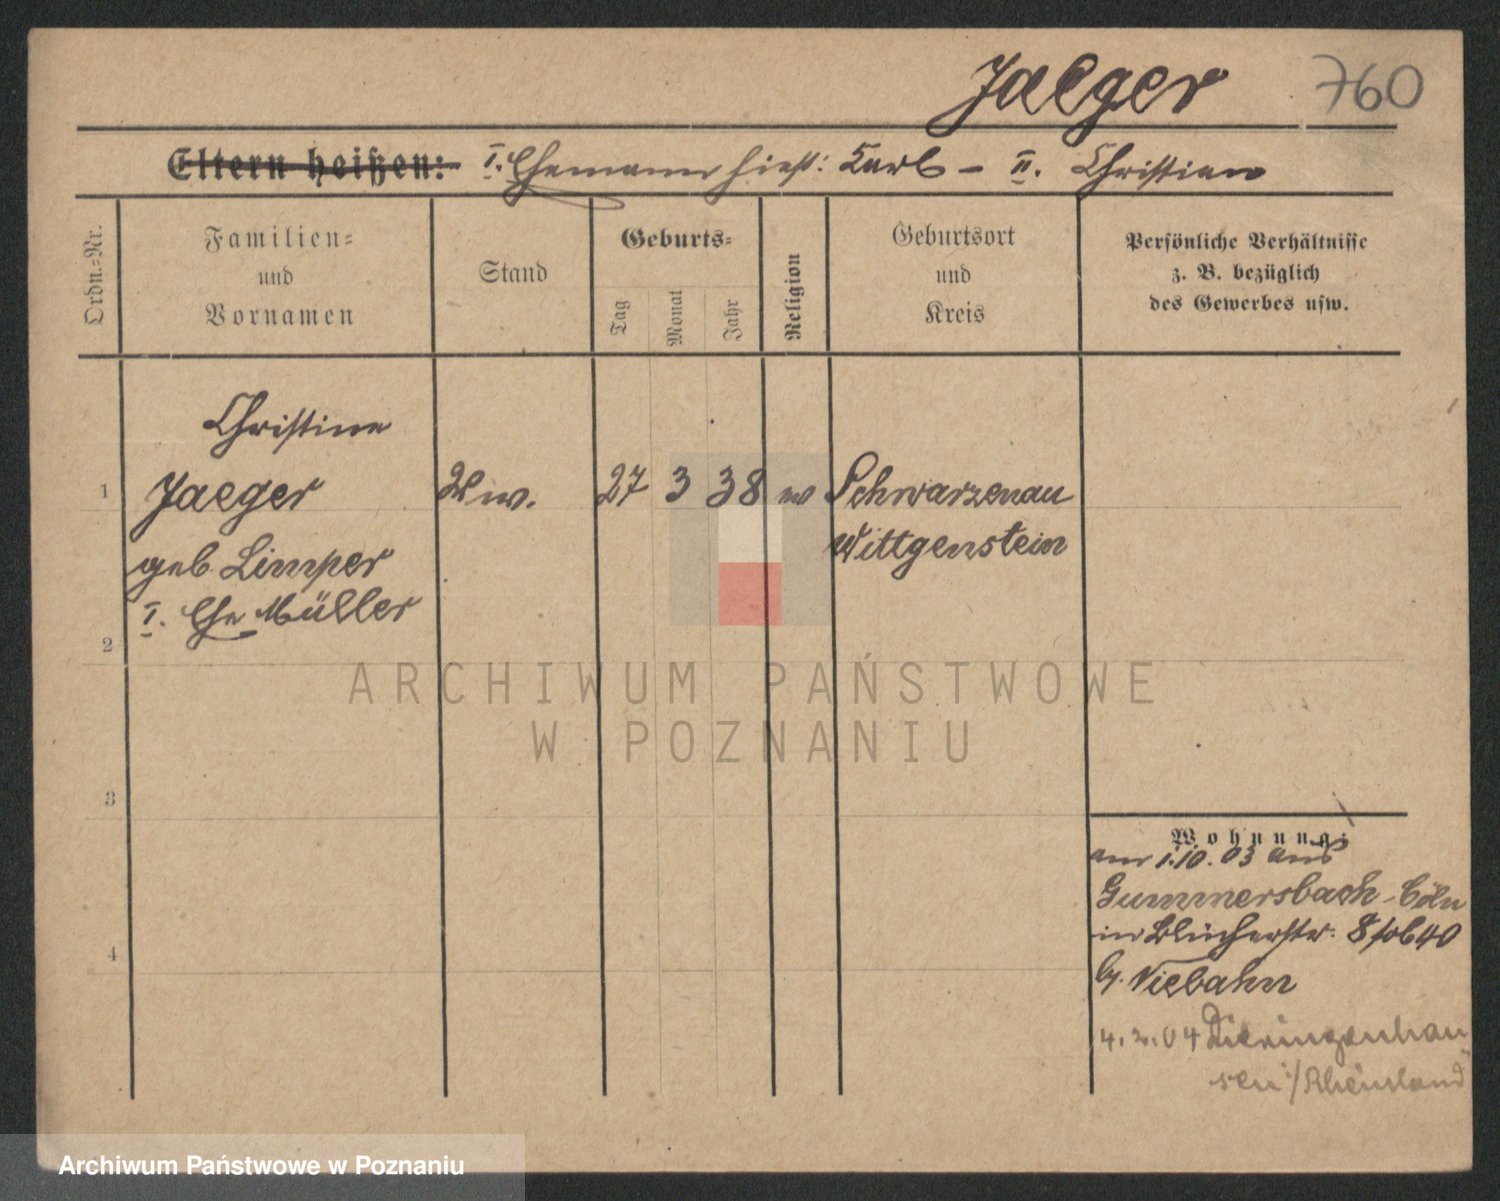 Jaeger 760
Eltern heißen: I. Ehemann hieß: Karl – II. Christian
Ordn.=Nr.
Familien=
und
Vornamen
Stand
Geburts=
Tag
Monat
Jahr
Religion
Geburtsort
und
Kreis
Persönliche Verhältnisse
z. B. bezüglich
des Gewerbes usw.
Christine
1 Jaeger Ww. 27 3 38 ev Schwarzenau
geb. Limper Wittgenstein
I. Ehe Müller
2
ARCHIWUM PAŃSTWOWE
W POZNANIU
3
Wohnung:
am 1.10.03 aus
Gummersbach - Cöln
in Blücherstr. 8
4
b. Viebahn
4.2.04 Dieringenhau
sen /Rheinland
Archiwum Państwowe w Poznaniu